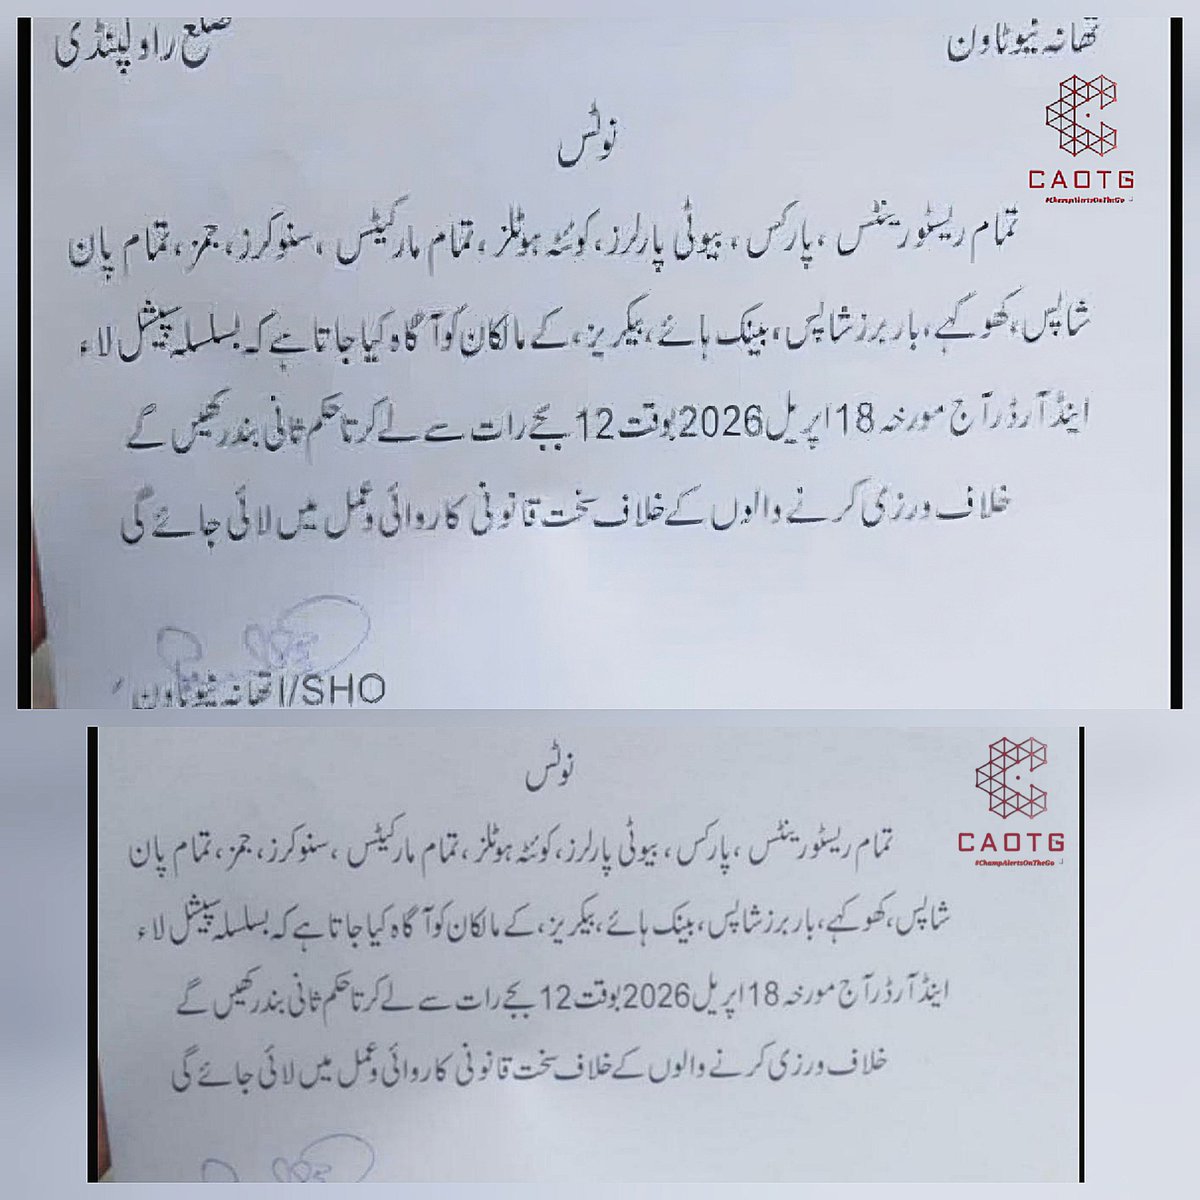 تھانہ نیوٹاون
ضلع راولپنڈی
CAOTG
#ChampAlertsOnTheGo
نوٹس
تمام ریسٹورینٹس ، پارکس ، بیوٹی پارلرز، کوئٹہ ہوٹلز ، تمام مارکیٹس ، سنوکرز، جمز ، تمام پان
شاپس، کھوکہے، باربرز شاپس، بینک ہائے، بیکریز، کے مالکان کو آگاہ کیا جاتا ہے کہ بسلسلہ سپیشل لاء
اینڈ آرڈر آج مورخہ 18 اپریل 2026 بوقت 12 بجے رات سے لے کر تا حکم ثانی بند رکھیں گے
خلاف ورزی کرنے والوں کے خلاف سخت قانونی کاروائی و عمل میں لائی جائے گی
SHO/ا تھانہ نیوٹاون
CAOTG
#ChampAlertsOnTheGo
نوٹس
تمام ریسٹورینٹس ، پارکس ، بیوٹی پارلرز، کوئٹہ ہوٹلز ، تمام مارکیٹس ، سنوکرز، جمز ، تمام پان
شاپس، کھوکہے، باربرز شاپس، بینک ہائے، بیکریز، کے مالکان کو آگاہ کیا جاتا ہے کہ بسلسلہ سپیشل لاء
اینڈ آرڈر آج مورخہ 18 اپریل 2026 بوقت 12 بجے رات سے لے کر تا حکم ثانی بند رکھیں گے
خلاف ورزی کرنے والوں کے خلاف سخت قانونی کاروائی و عمل میں لائی جائے گی